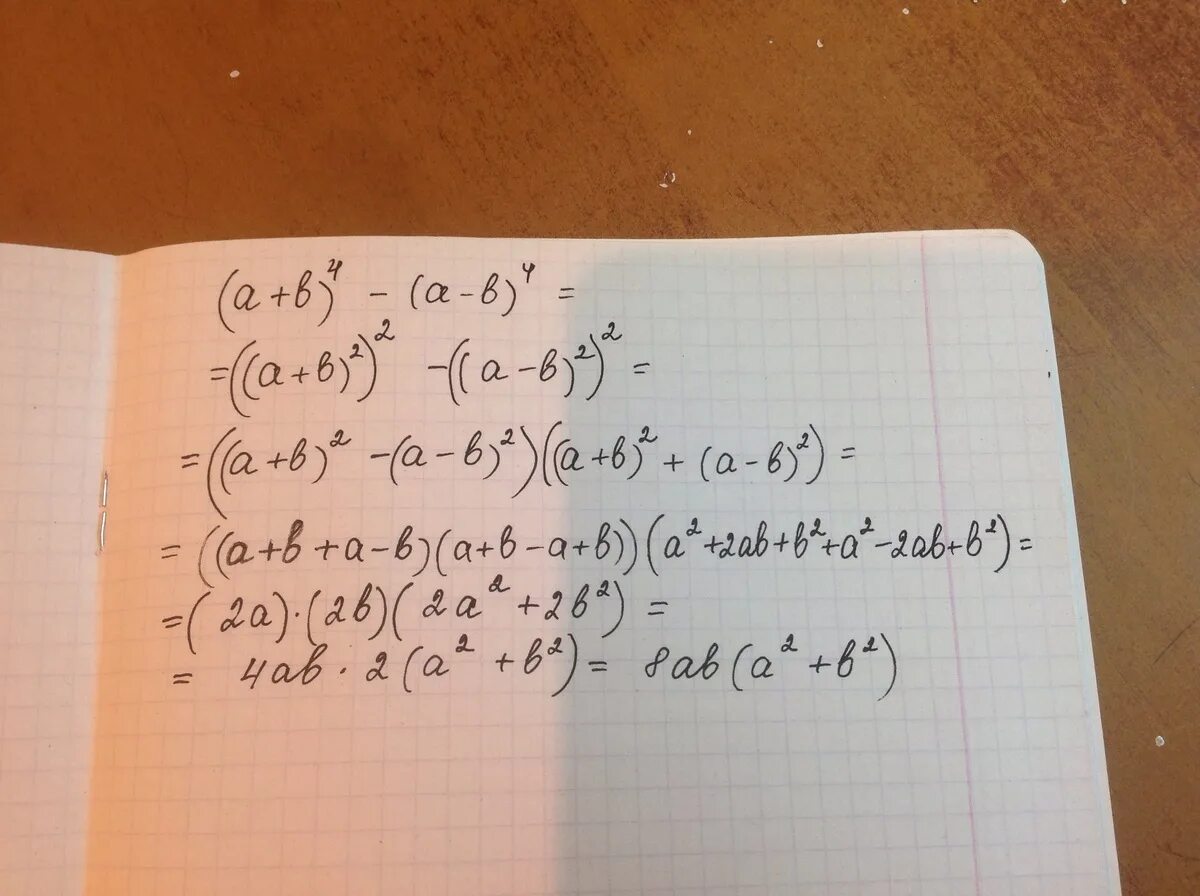 (a+b)⁴ - (a-b)⁴ =
=((a+b)²)² -((a-b)²)² =
=((a+b)² -(a-b)²)((a+b)² + (a-b)²) =
= ((a+b+a-b)(a+b-a+b))(a²+2ab+b²+a²-2ab+b²) =
=(2a)·(2b)(2a²+2b²) =
= 4ab · 2(a²+b²) = 8ab(a²+b²)